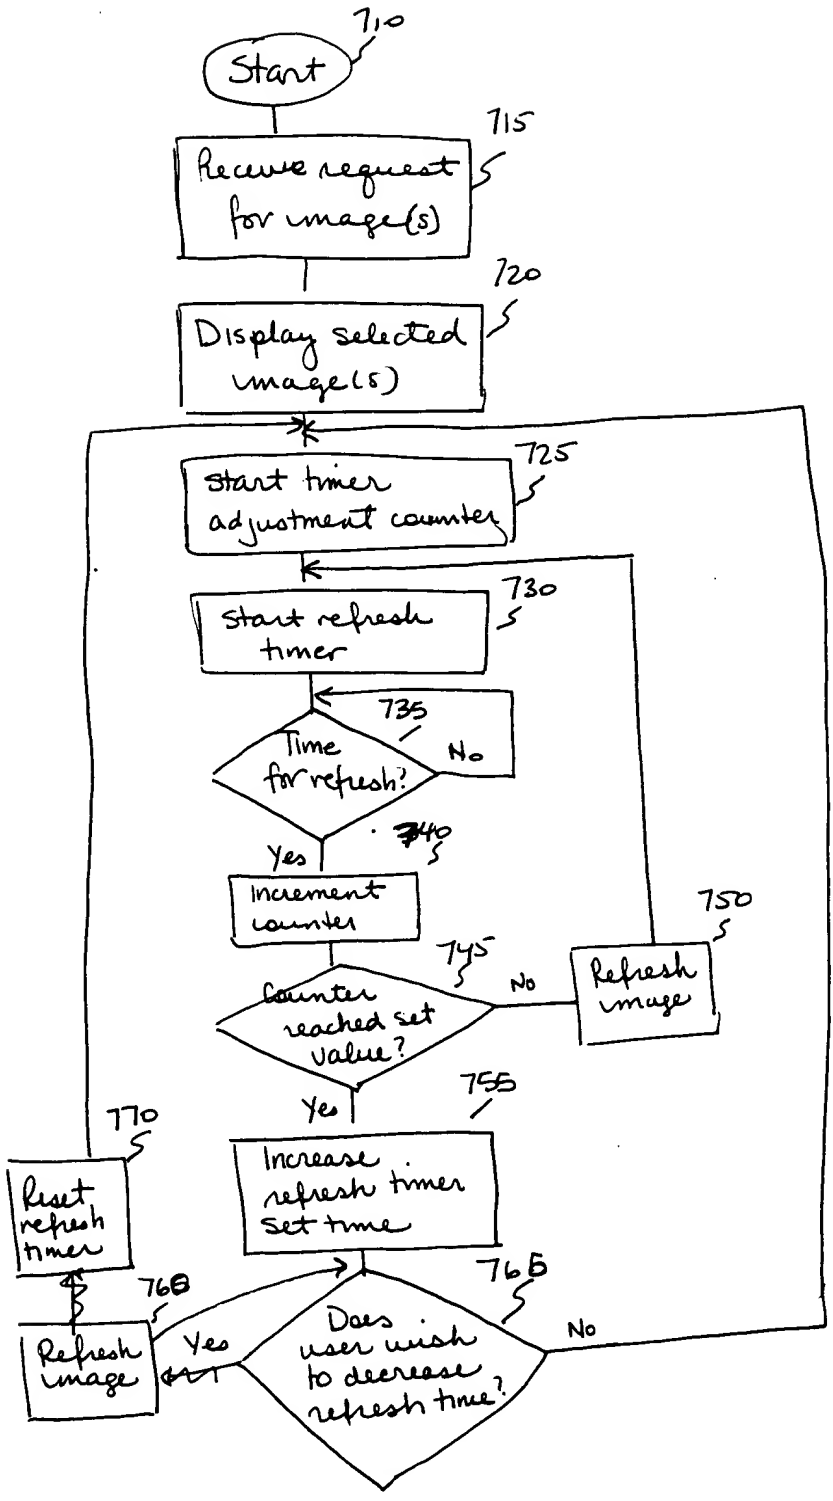 710
Start
715
Receive request
for image(s)
720
Display selected
image(s)
725
Start timer
adjustment counter
730
Start refresh
timer
735
Time
for refresh?
No
740
Yes
Increment
counter
745
750
Counter
reached set
value?
No
Refresh
image
755
Yes
770
Increase
refresh timer
set time
Reset
refresh
timer
765
760
Does
user wish
to decrease
refresh time?
Yes
No
Refresh
image